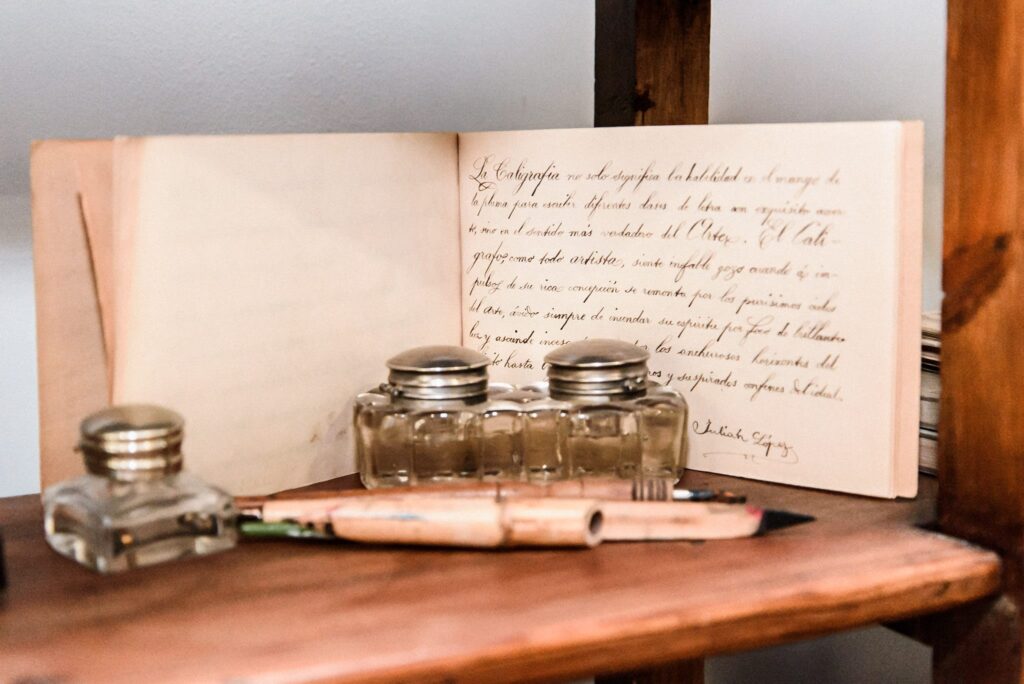 La Caligrafía no solo significa la habilidad en el manejo de
la pluma para escribir diferentes clases de letra con exquisito acier-
to, sino en el sentido más verdadero del Arte. El Calí-
grafo, como todo artista, siente inefable gozo cuando á im-
pulsos de su rica concepción se remonta por los purísimos cielos
del arte, ávido siempre de inundar su espíritu por foco de brillante
luz y asciende por los anchurosos horizontes del
hasta y suspirados confines del ideal.
Julián López